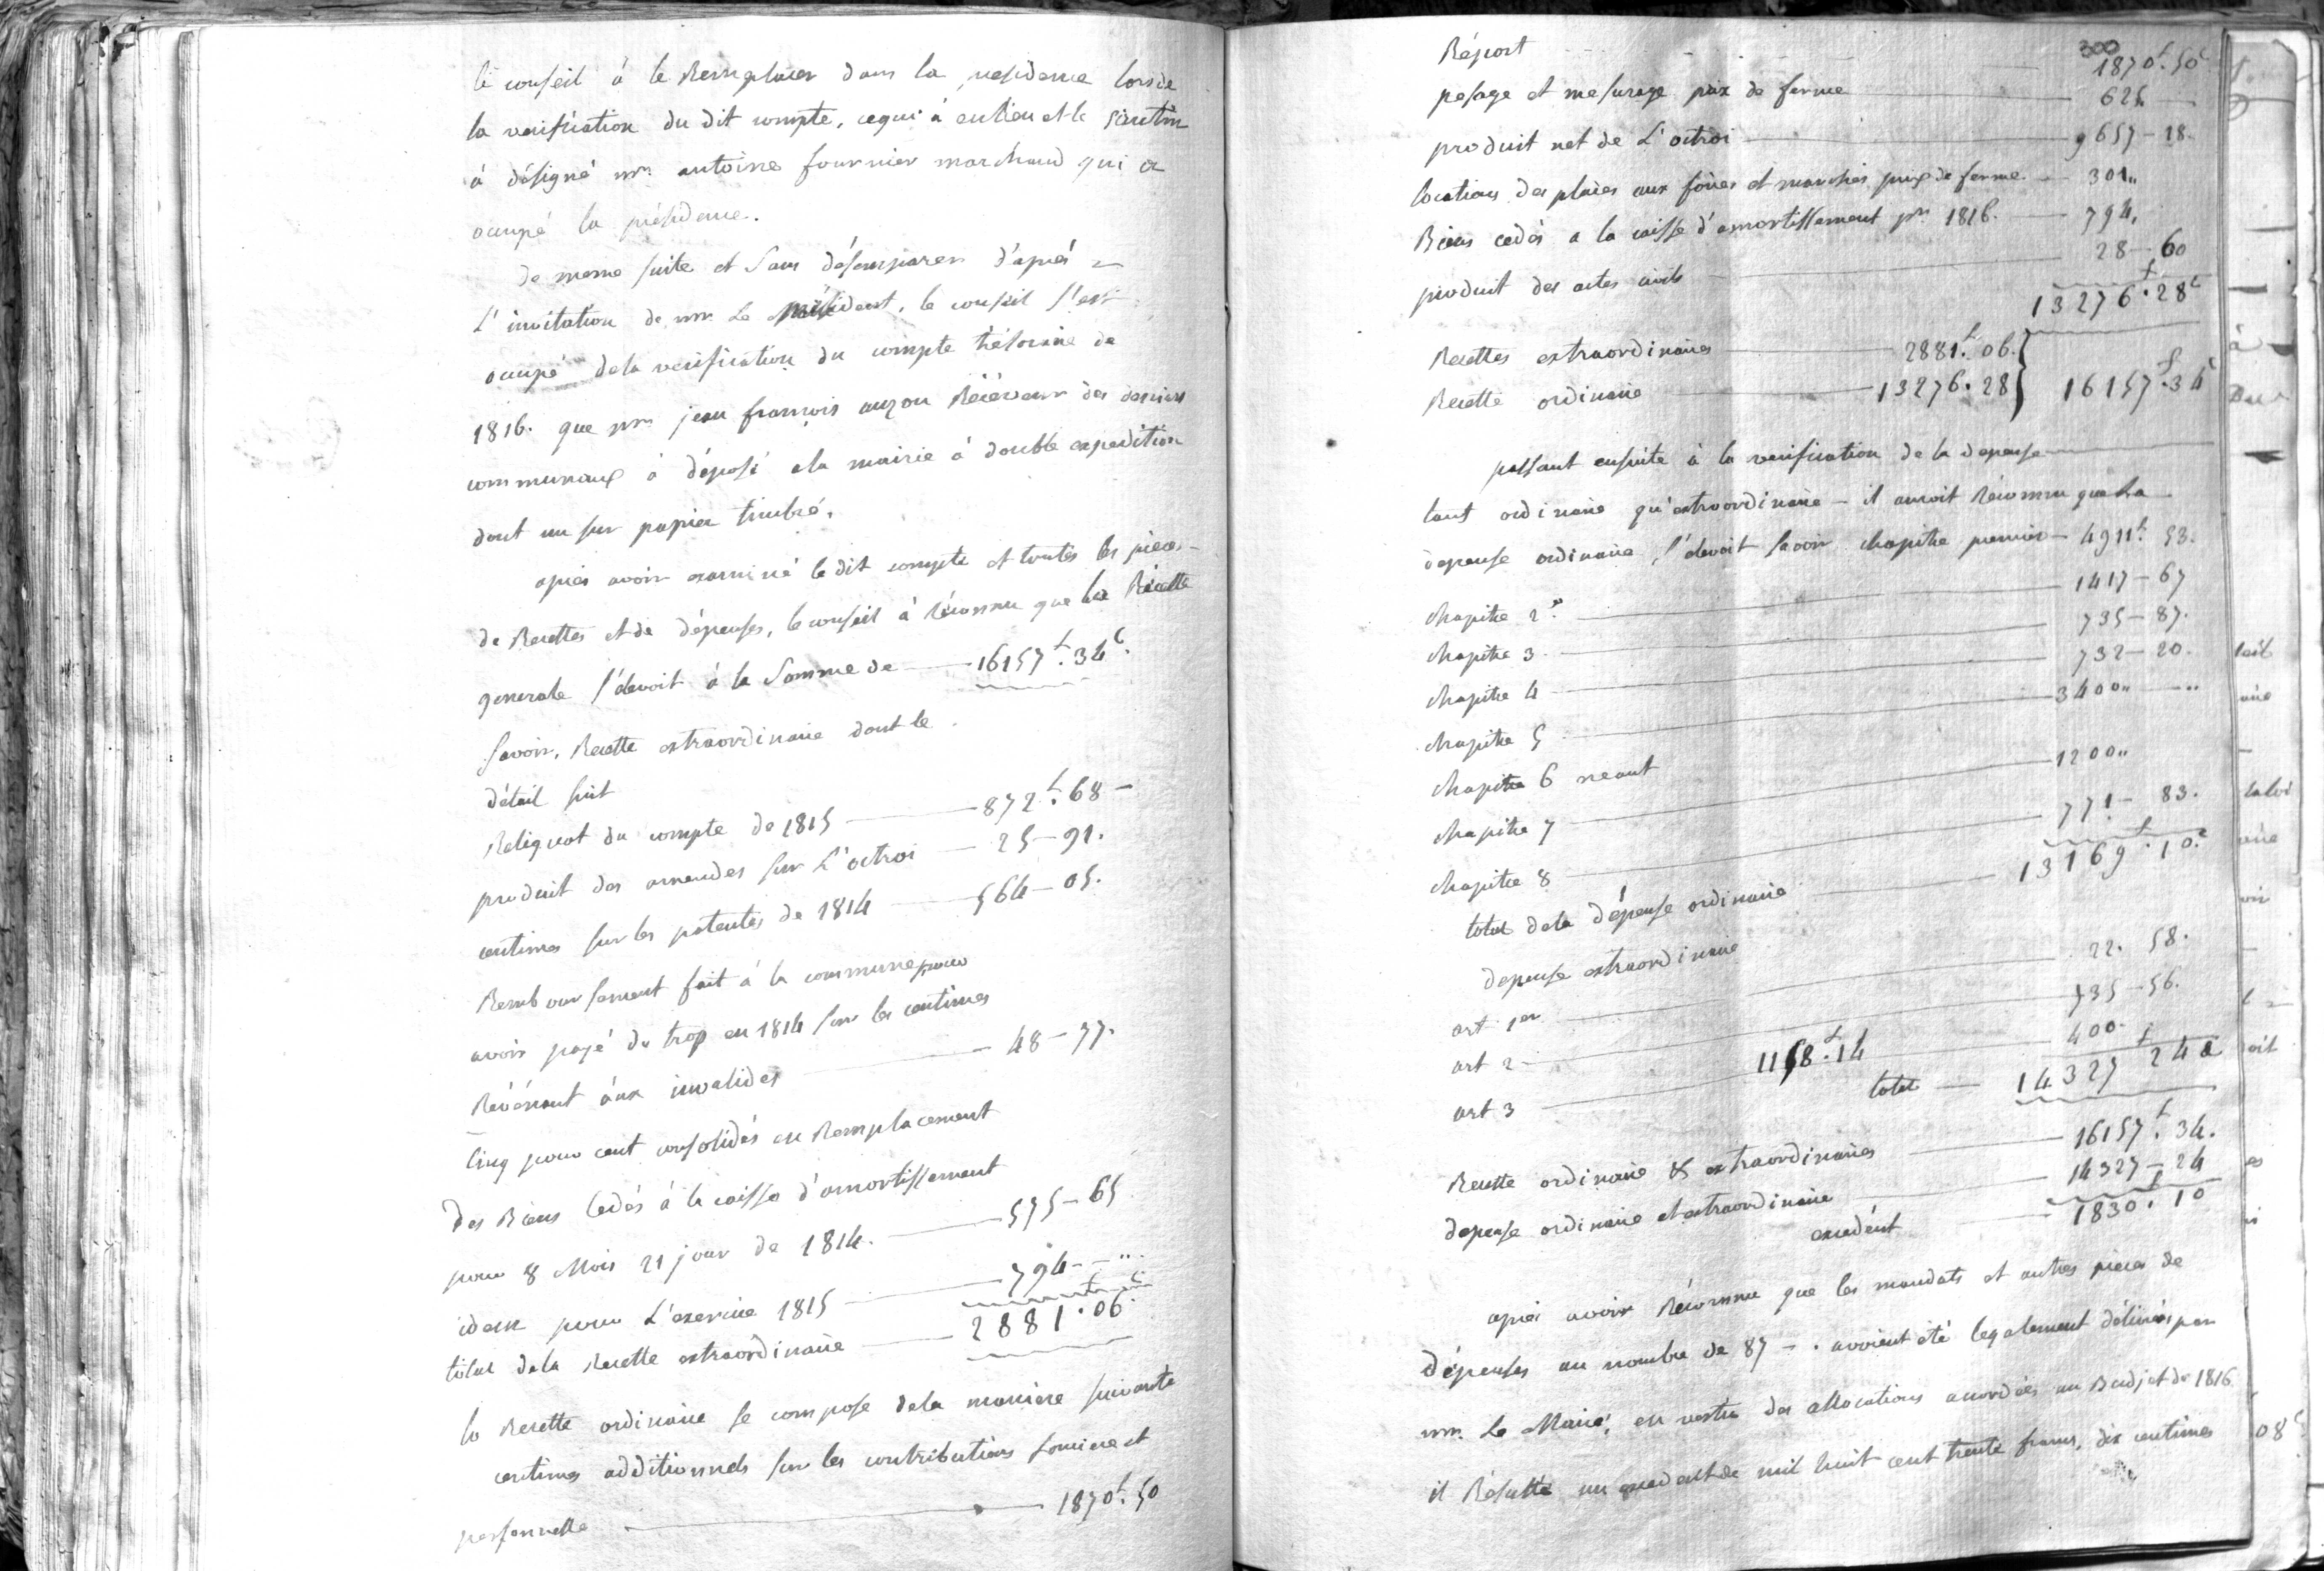 le conseil à le Remplacer dans la présidence lors de
la verification du dit compte, ce qui à eu lieu et le scrutin
à désigné mr. antoine fournier marchand qui a
occupé la présidence.
de meme suite et sans désemparer d'après
L'invitation de mr. Le président, le conseil s'est
occupé dela verification du compte trésoraire de
1816. que mr. jean francois auzou Récéveur des deniers
communaux à déposé ala mairie à double expedition
dont un sur papier timbré.
après avoir examiné le dit compte et toutes les pieces
de Recettes et de dépenses, le conseil à réconnu que la Récette
generale s'élevoit à la Somme de — 16157f. 34c.
Savoir, Recette extraordinaire dont le
détail suit
Reliquat du compte de 1815 — 872f. 68 —
produit des amendes sur L'octroi — 25 — 91.
centimes sur les patentes de 1814 — 564 — 05.
Remboursement fait à la commune pour
avoir payé du trop en 1814 sur les centimes
Révénant aux invalides — 48 — 77.
Cinq pour cent consolidés en Remplacement
des Biens Cédés à la caisse d'amortissement
pour 8 Mois 21 jour de 1814. — 575 — 65
idem pour L'exercice 1815 — 794 — ".
total dela Recette extraordinaire — 2881f. 06c.
la Recette ordinaire se compose dela manière suivante
centimes additionnels sur les contributions fonciere et
personnelle — 1870f. 50
300
Réport 1870f. 50c
pesage et mesurage prix de ferme — 625. —
produit net de L'octroi — 9657 — 18.
locations des places aux foires et marchés prix de ferme — 301"
Biens cedés a la caisse d'amortissement pr. 1816. — 794,
produit des actes civils — 28 — 60
13276f. 28c
Recettes extraordinaires — 2881f. 06.
Recette ordinaire — 13276. 28 } 16157f. 34c
passant ensuite à la verification de la depense —
tant ordinaire qu'extraordinaire — il auroit réconnu que La
depense ordinaire s'elevoit savoir chapitre premier — 4911f. 53.
chapitre 2e. — 1417 — 67
chapitre 3 — 735 — 87.
chapitre 4 — 732 — 20.
chapitre 5 — 3400" — "
chapitre 6 neant
chapitre 7 — 1200"
chapitre 8 — 771 — 83.
total dela dépense ordinaire — 13169f. 10c
depense extraordinaire
art 1er — 22. 58.
art 2 — 735 — 56.
art 3 — 400.
1158f. 14
total — 14327f 24c
Recette ordinaire & extraordinaires — 16157f. 34.
depense ordinaire et extraordinaire — 14327 — 24
excedent — 1830f. 10
après avoir Réconnu que les mandats et autres pieces de
dépenses au nombre de 87 — . avoient été legalement délivrés par
mr. Le Maire, en vertu des allocations accordées au Budjet de 1816
il Résulte un excedent de mil huit cent trente francs, dix centimes